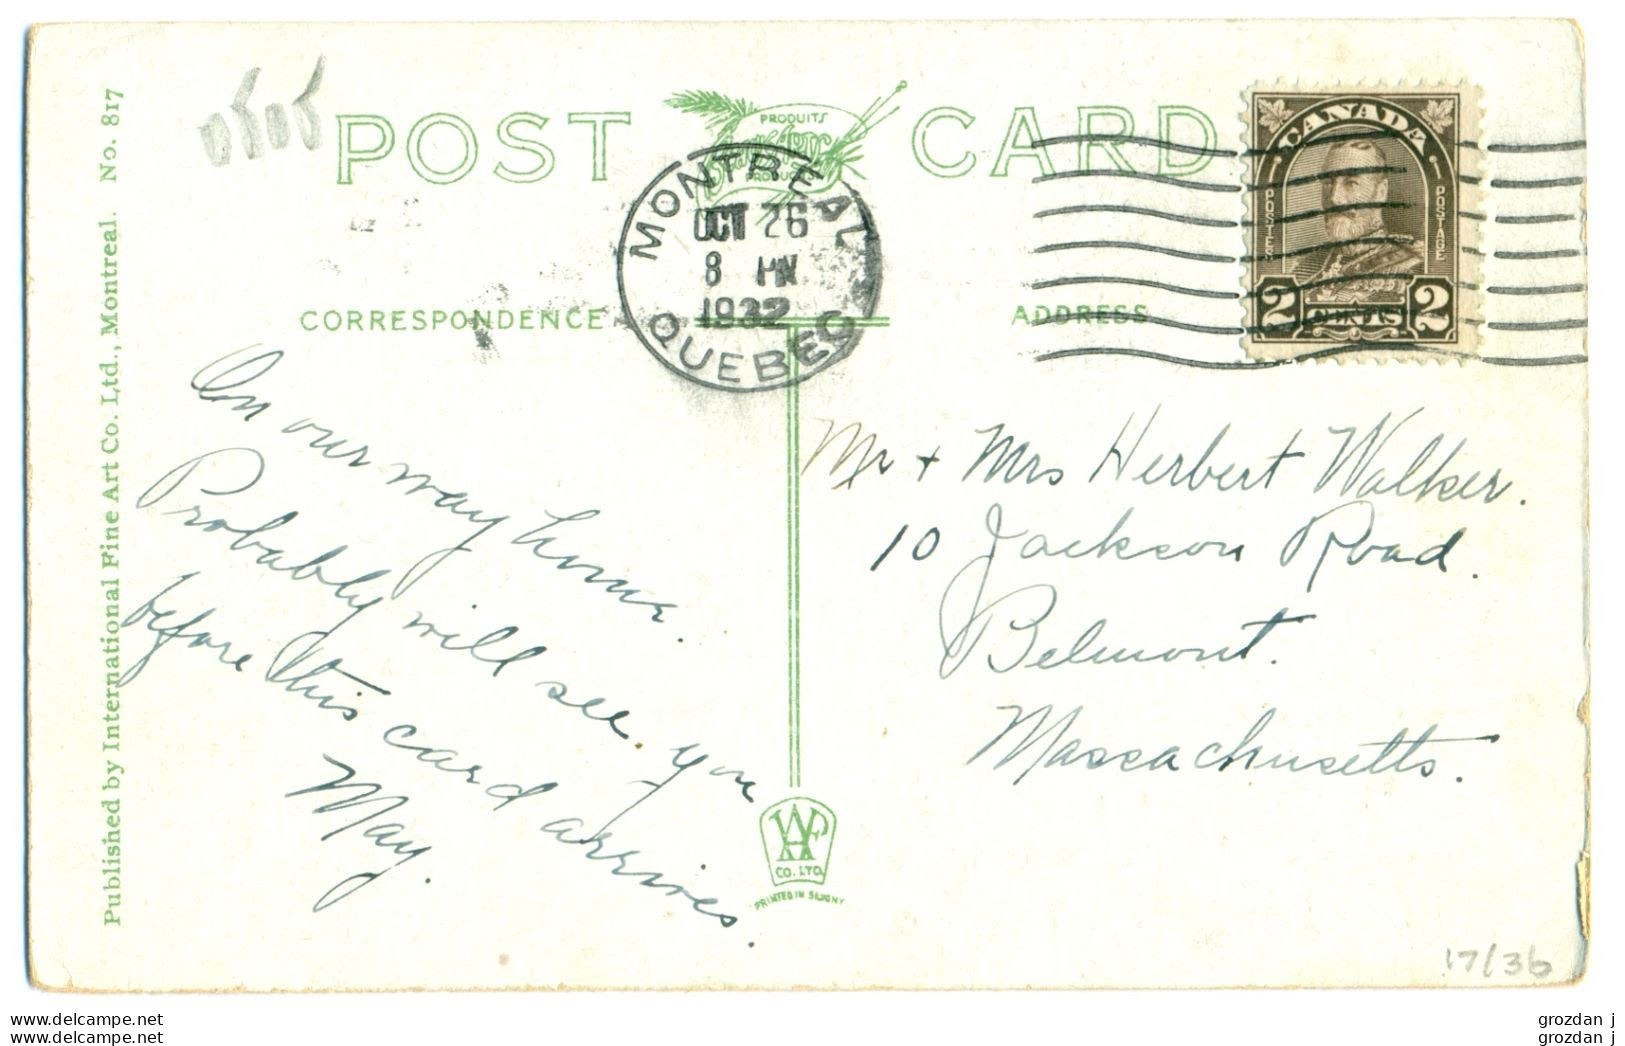 POST CARD
PRODUITS
MONTREAL
OCT 26
8 PM
1932
QUEBEC
CANADA
POSTES
POSTAGE
2
2
CORRESPONDENCE
ADDRESS
Published by International Fine Art Co. Ltd., Montreal. No. 817
On our way home.
Probably will see you
before this card arrives.
May.
Mr + Mrs Herbert Walker.
10 Jackson Road.
Belmont.
Massachusetts.
CO. LTD.
17/36
www.delcampe.net
www.delcampe.net
grozdan j
grozdan j